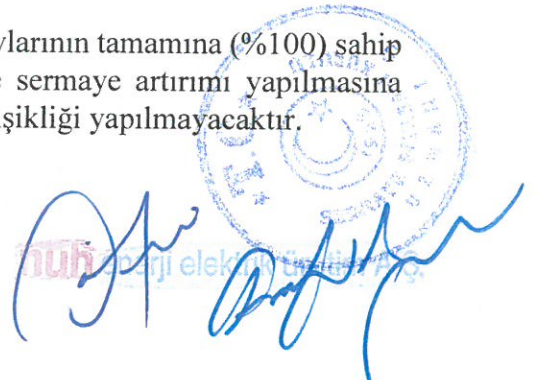 ylarının tamamına (%100) sahip
e sermaye artırımı yapılmasına
şikliği yapılmayacaktır.
T.C.
nuh enerji elektrik üretim A.Ş.